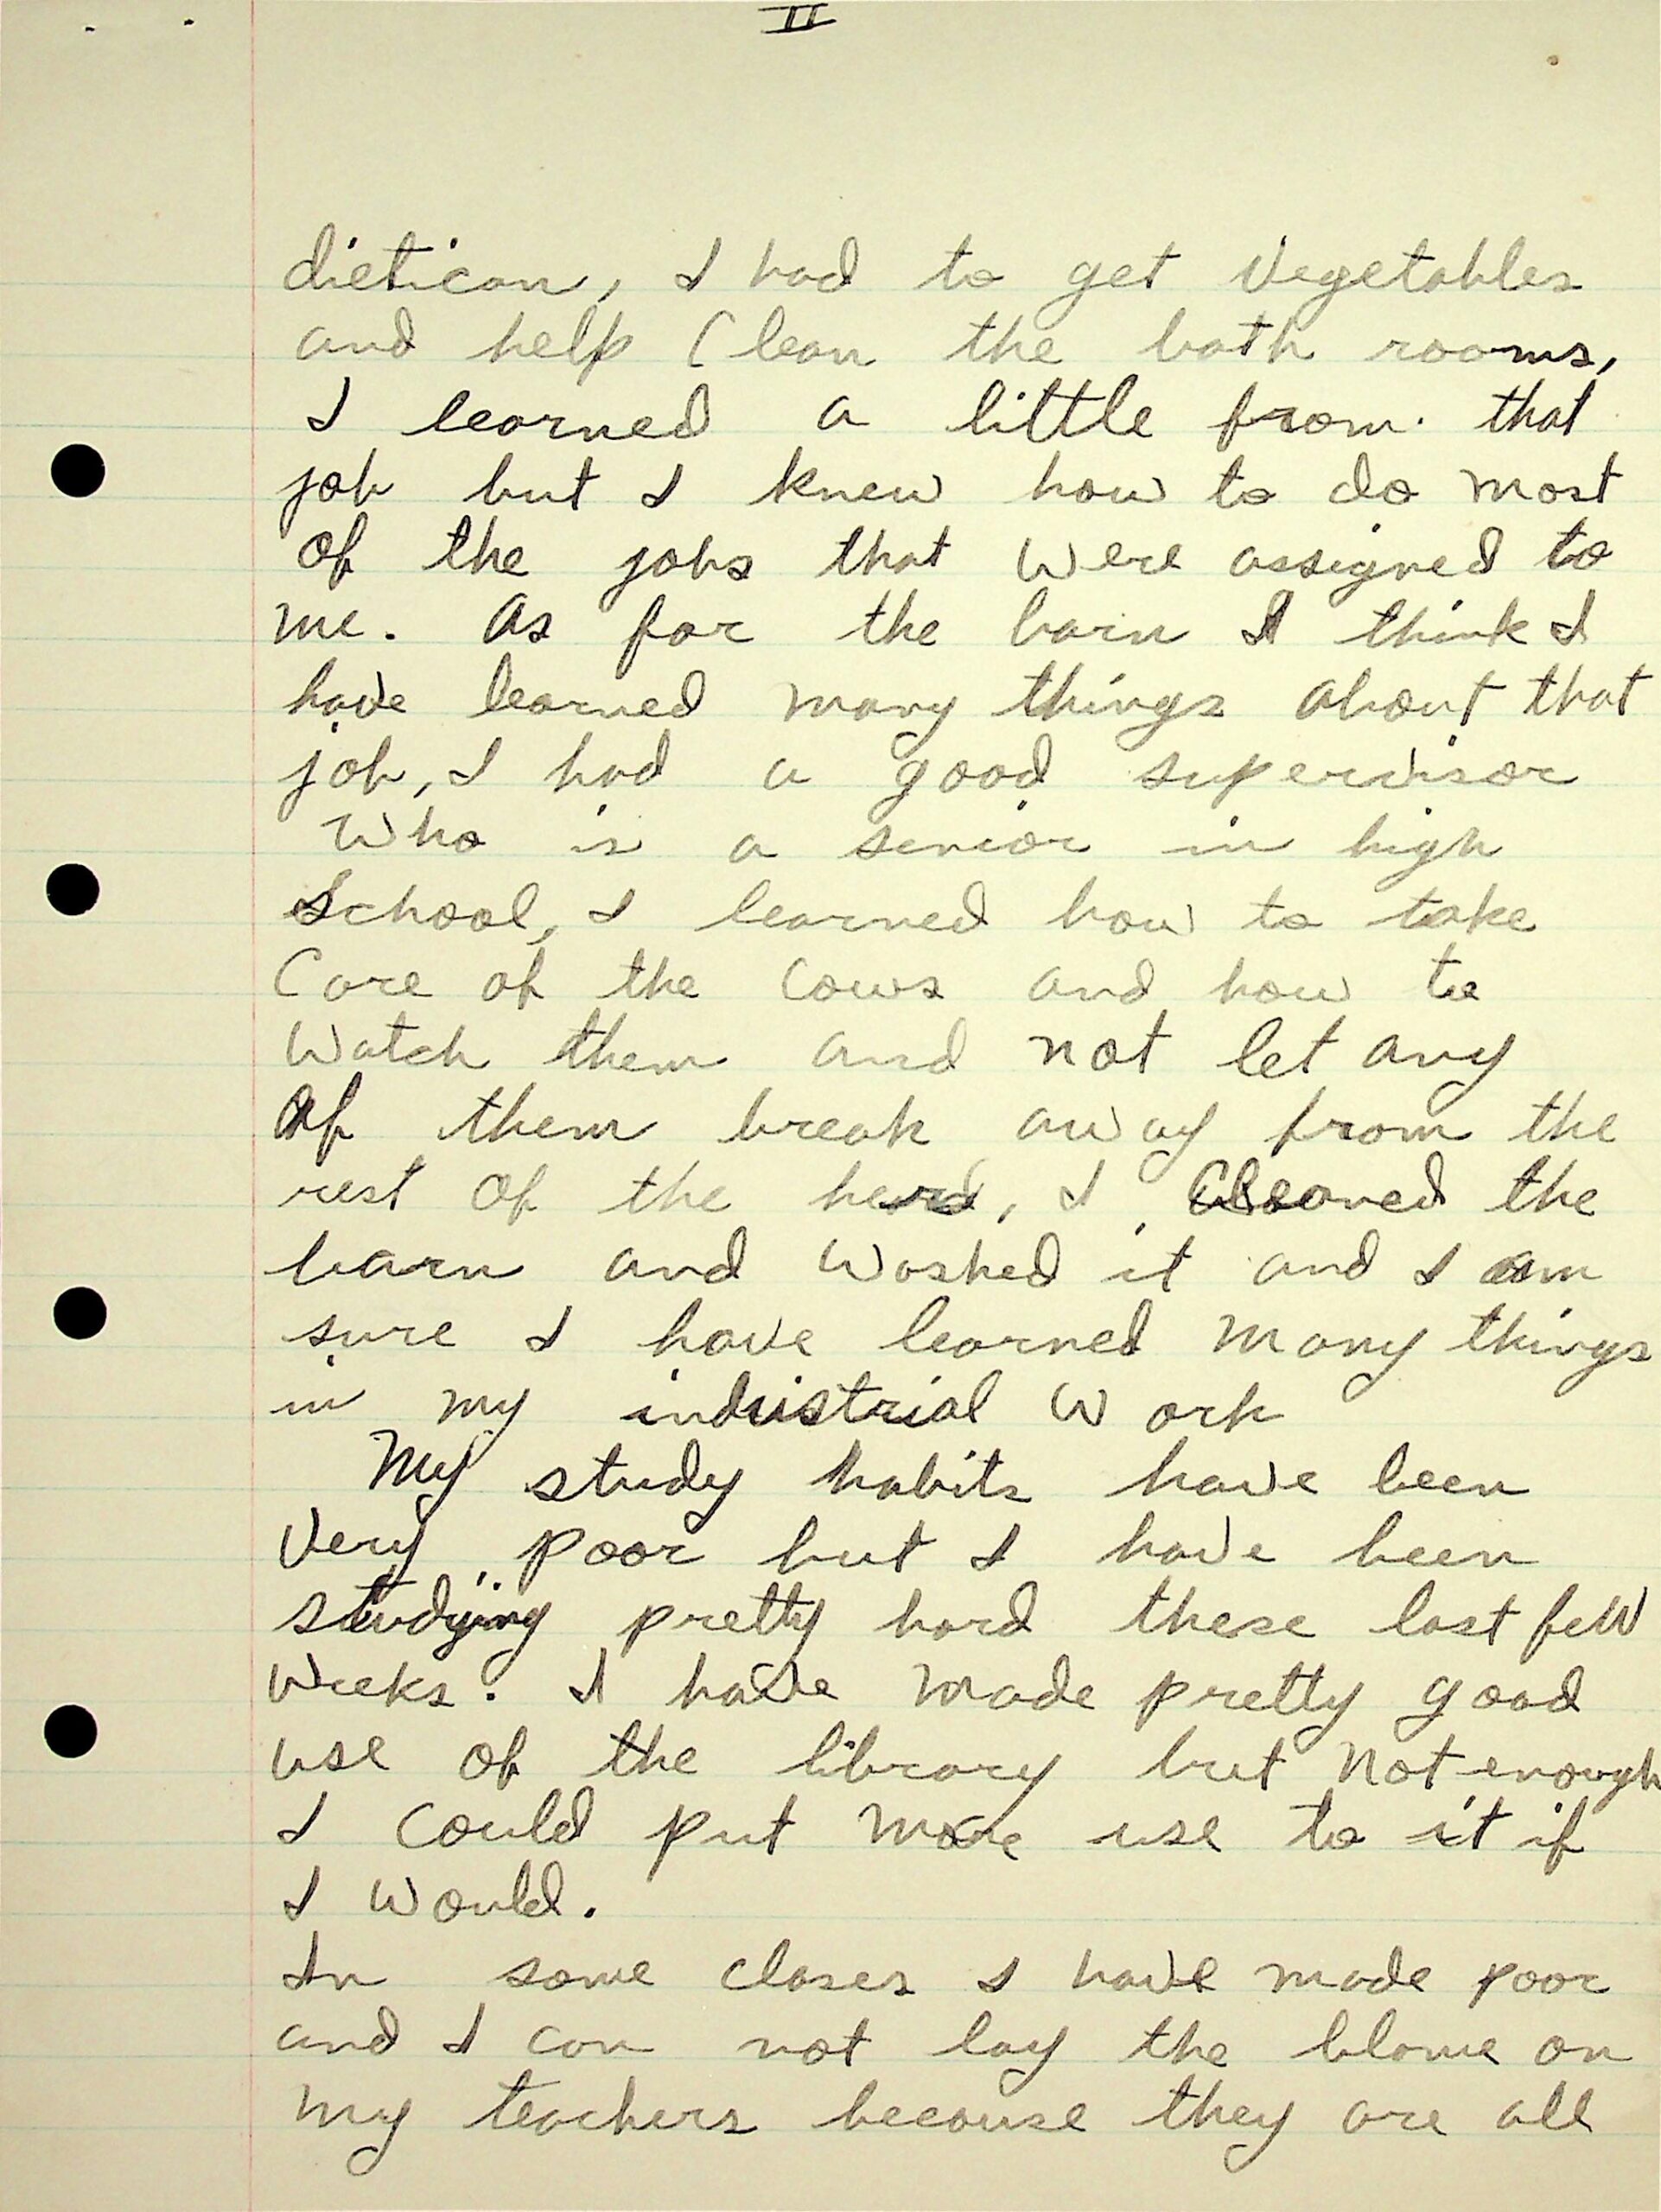 II
dietican, I had to get vegetables
and help Clean the bath rooms,
I learned a little from that
job but I knew how to do most
of the jobs that were assigned to
me. As for the barn I think I
have learned many things about that
job, I had a good supervisor
who is a senior in high
School, I learned how to take
Care of the Cows and how to
Watch them and not let any
Of them break away from the
rest Of the herd, I Cleaned the
barn and Washed it and I am
sure I have learned Many things
in my industrial Work
My study habits have been
Very poor but I have been
studying pretty hard these last few
weeks. I have made pretty good
use of the library but Not enough
I Could put More use to it if
I Would.
In some clases I have made poor
and I can not lay the blame on
my teachers because they are all